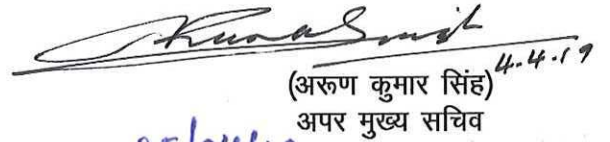 4.4.19
(अरुण कुमार सिंह)
अपर मुख्य सचिव